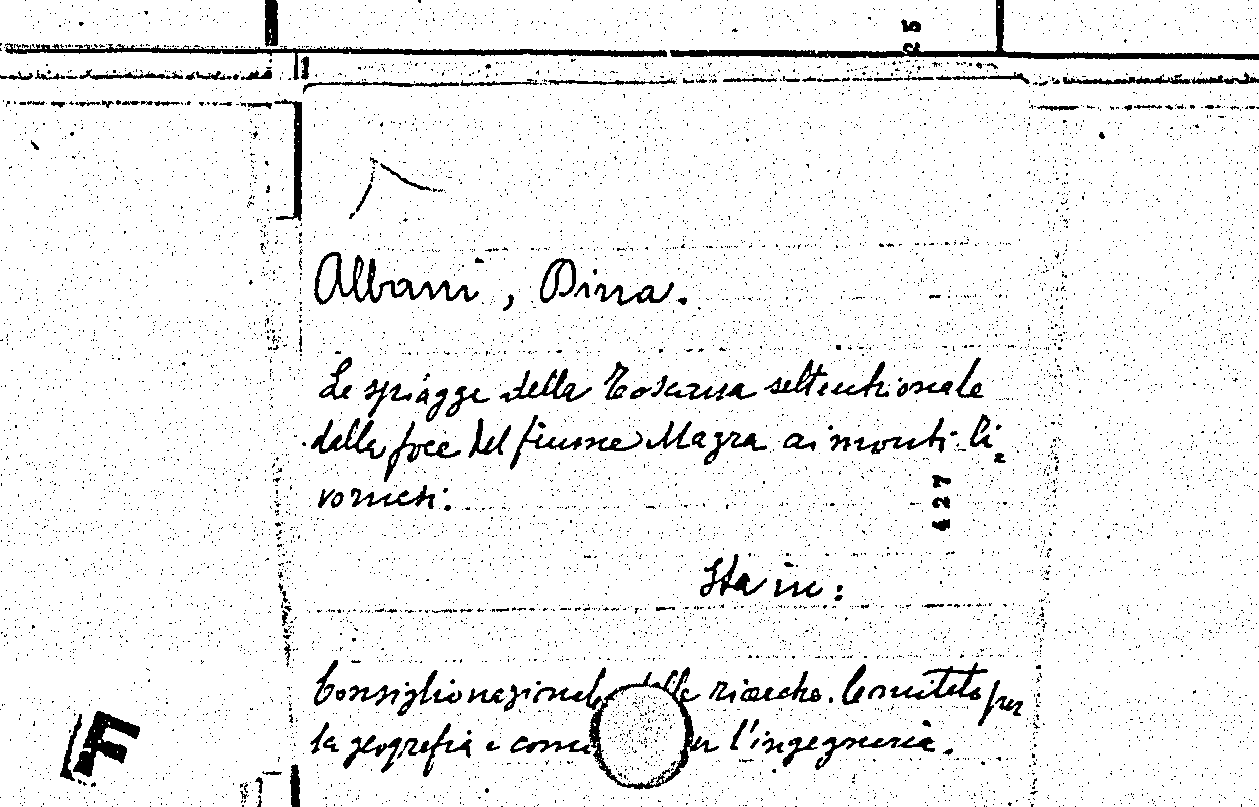 25
Albani, Dina.
Le spiagge della Toscana settentrionale
dalla foce del fiume Magra ai monti li=
vornesi.
427
Sta in:
Consiglio nazionale delle ricerche. Comitato per
la geografia e com per l'ingegneria.
F